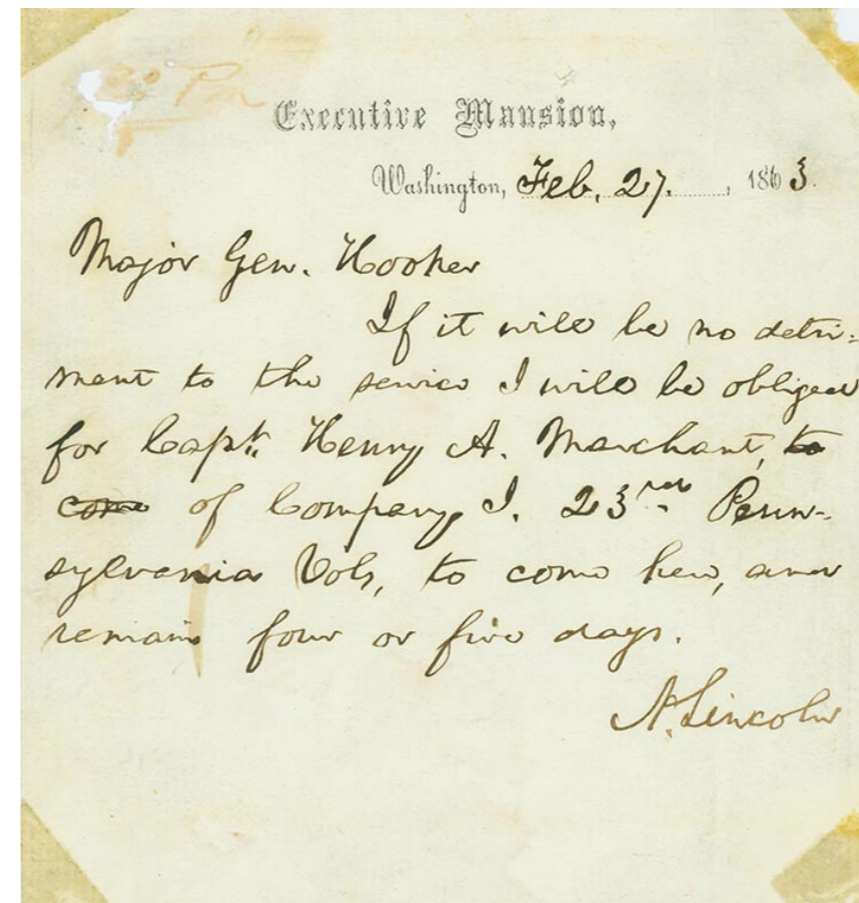 Executive Mansion,
Washington, Feb. 27. , 1863.
Major Gen. Hooker
If it will be no detri-
ment to the service I will be obliged
for Capt. Henry A. Marchant, to
come of Company I. 23rd Penn-
sylvania Vols, to come here, and
remain four or five days.
A. Lincoln